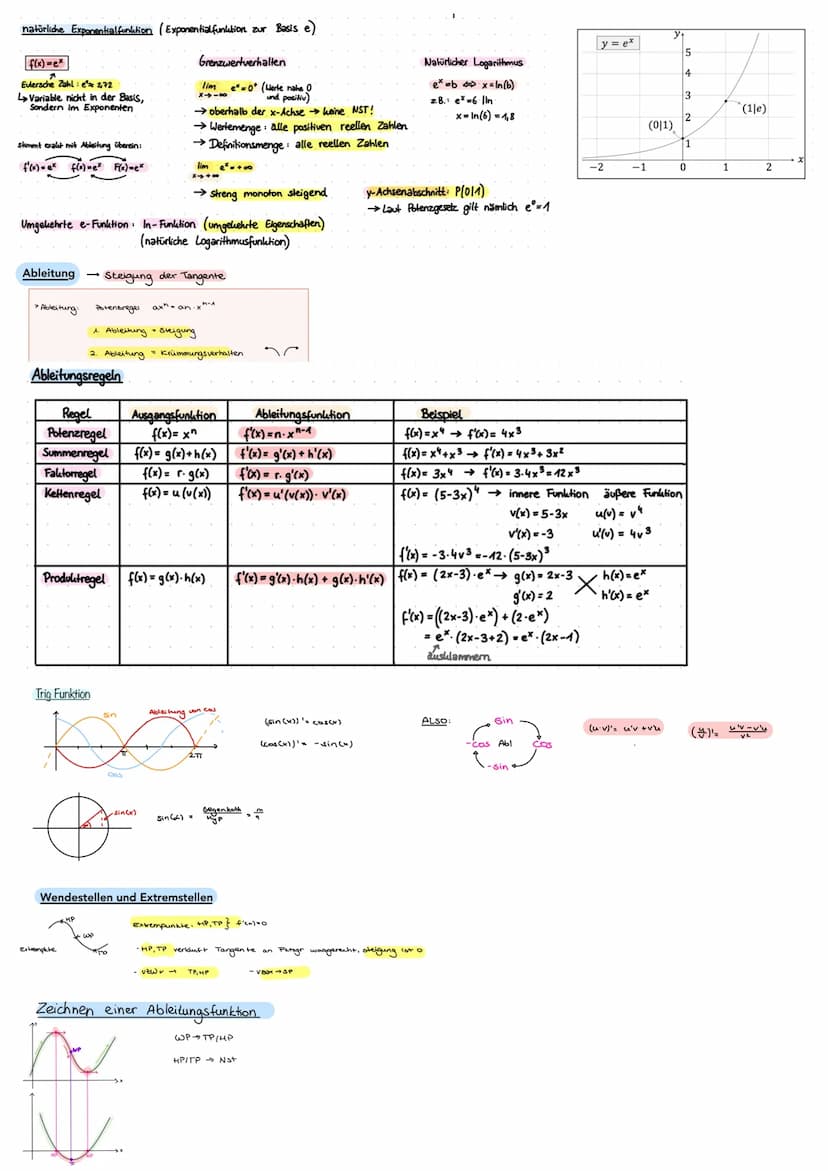 1
natürliche Exponentialfunktion (Exponentialfunktion zur Basis e)
f(x)=eˣ
Eulersche Zahl: e¹≈ 2,72
↳ Variable nicht in der Basis,
sondern im Exponenten
stimmt exakt mit Ableitung überein:
f'(x)=eˣ f(x)=eˣ F(x)=eˣ
Grenzwertverhalten
lim eˣ=0⁺ (Werte nahe 0
x→-∞ und positiv)
→ oberhalb der x-Achse → keine NST!
→ Wertemenge: alle positiven reellen Zahlen
→ Definitionsmenge: alle reellen Zahlen
lim eˣ=+∞
x→+∞
→ streng monoton steigend
Natürlicher Logarithmus
eˣ=b ⇔ x=ln(b)
z.B.: eˣ=6 |ln
x=ln(6)=1,8
y-Achsenabschnitt: P(0|1)
→ Laut Potenzgesetz gilt nämlich e⁰=1
Umgekehrte e-Funktion: ln-Funktion (umgekehrte Eigenschaften)
(natürliche Logarithmusfunktion)
y = eˣ
y
5
4
3
2
1
(1|e)
(0|1)
x
−2 −1 0 1 2
Ableitung → Steigung der Tangente
> Ableitung: Potenzregel axⁿ = an · xⁿ⁻¹
1. Ableitung = Steigung
2. Ableitung = Krümmungsverhalten
Ableitungsregeln
Regel Ausgangsfunktion Ableitungsfunktion Beispiel
Potenzregel f(x)= xⁿ f'(x)=n·xⁿ⁻¹ f(x)=x⁴ → f'(x)= 4x³
Summenregel f(x)= g(x)+h(x) f'(x)= g'(x)+h'(x) f(x)= x⁴+x³ → f'(x)=4x³+3x²
Faktorregel f(x)= r·g(x) f'(x)= r·g'(x) f(x)= 3x⁴ → f'(x)=3·4x³=12x³
Kettenregel f(x)= u(v(x)) f'(x)=u'(v(x))·v'(x) f(x)= (5-3x)⁴ → innere Funktion äußere Funktion
v(x)=5-3x u(v)= v⁴
v'(x)=-3 u'(v)= 4v³
f'(x)= -3·4v³=-12·(5-3x)³
Produktregel f(x)=g(x)·h(x) f'(x)=g'(x)·h(x)+g(x)·h'(x) f(x)= (2x-3)·eˣ → g(x)=2x-3 h(x)=eˣ
g'(x)=2 h'(x)=eˣ
f'(x)=((2x-3)·eˣ)+(2·eˣ)
= eˣ·(2x-3+2)=eˣ·(2x-1)
ausklammern
Trig Funktion
sin
Ableitung von cos
cos
π
2π
(sin(x))'= cos(x)
(cos(x))'= -sin(x)
ALSO:
sin
-cos Abl cos
-sin
(u·v)'= u'v+v'u
(u/v)'= (u'v-v'u)/v²
sin(x)
Wendestellen und Extremstellen
HP
WP
TP
Extrempunkte: HP,TP } f'(x)=0
- HP,TP verläuft Tangente an Fktgr waagerecht, Steigung ist 0
- VZW → TP,HP
Zeichnen einer Ableitungsfunktion
WP→TP/HP
HP/TP → Nst
WP
x
x